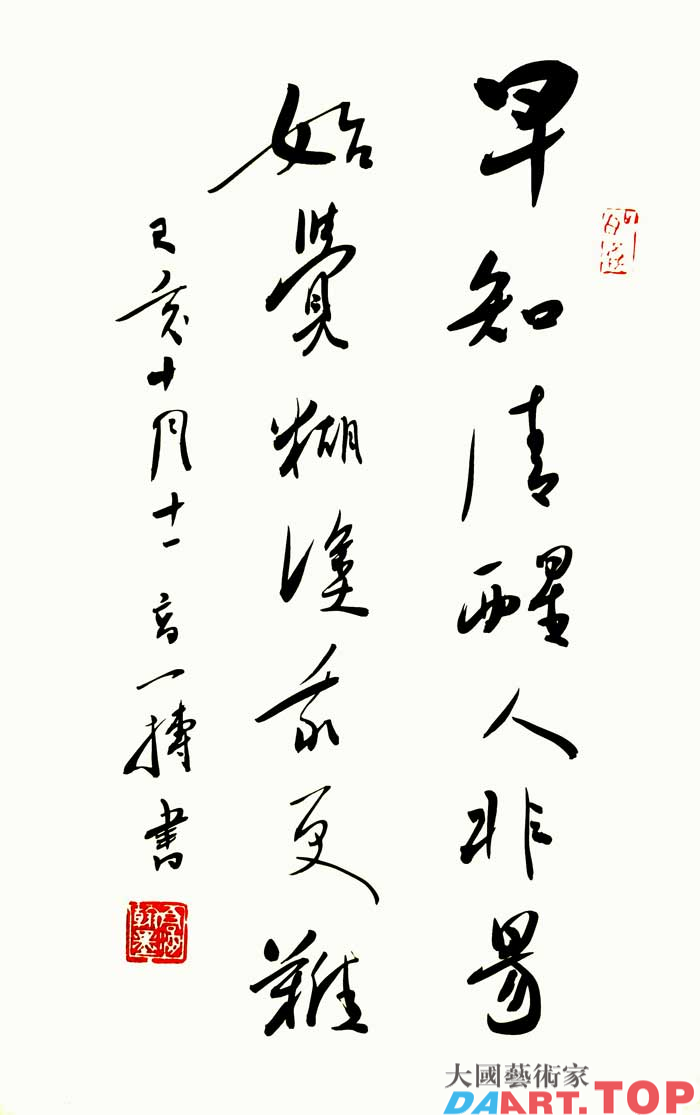 早知清醒人非易
始覺糊塗我更難
己亥十月十一高一摶書
大國藝術家
DAART.TOP